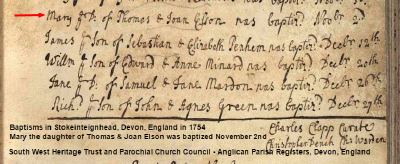 Mary ye D. of Thomas & Joan Elson was baptiz. Novbr 2d
James ye Son of Sebastian & Elizabeth Penhem was baptiz. Decbr 12th
Willm ye Son of Edward & Anne Minard was baptiz. Decbr 20th
Jane ye D. of Samuel & Jane Mardon was baptiz. Decbr 26th
Richd ye Son of John & Agnes Green was baptiz. Decbr 27th
Charles Clapp Curate
Christopher Church Warden
Baptisms in Stokeinteignhead, Devon, England in 1754
Mary the daughter of Thomas & Joan Elson was baptized November 2nd
South West Heritage Trust and Parochial Church Council - Anglican Parish Registers, Devon, England